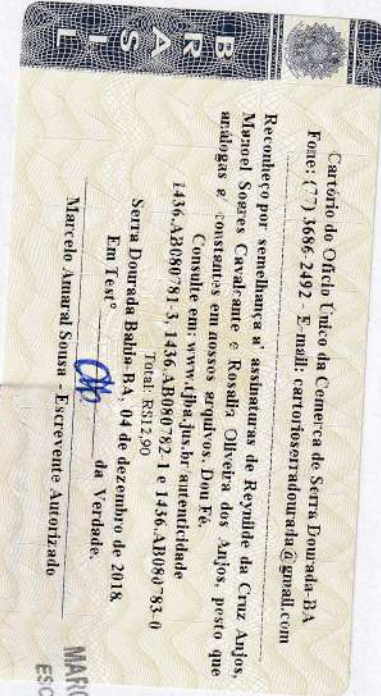 BRASIL
Cartório do Ofício Único da Comerca de Serra Dourada-BA
Fone: (77) 3686-2492 - E-mail: cartorioserradourada@gmail.com
Reconheço por semelhança a' assinaturas de Reynilde da Cruz Anjos,
Manoel Soares Cavalcante e Rosalia Oliveira dos Anjos, posto que
análogas a' constantes em nossos arquivos. Dou Fé.
Consulte em: www.tjba.jus.br/autenticidade
1436.AB080781-3, 1436.AB080782-1 e 1436.AB080783-0
Total: R$12,90
Serra Dourada Bahia-BA, 04 de dezembro de 2018.
Em Testº da Verdade.
Marcelo Amaral Sousa - Escrevente Autorizado
MARC
ESC